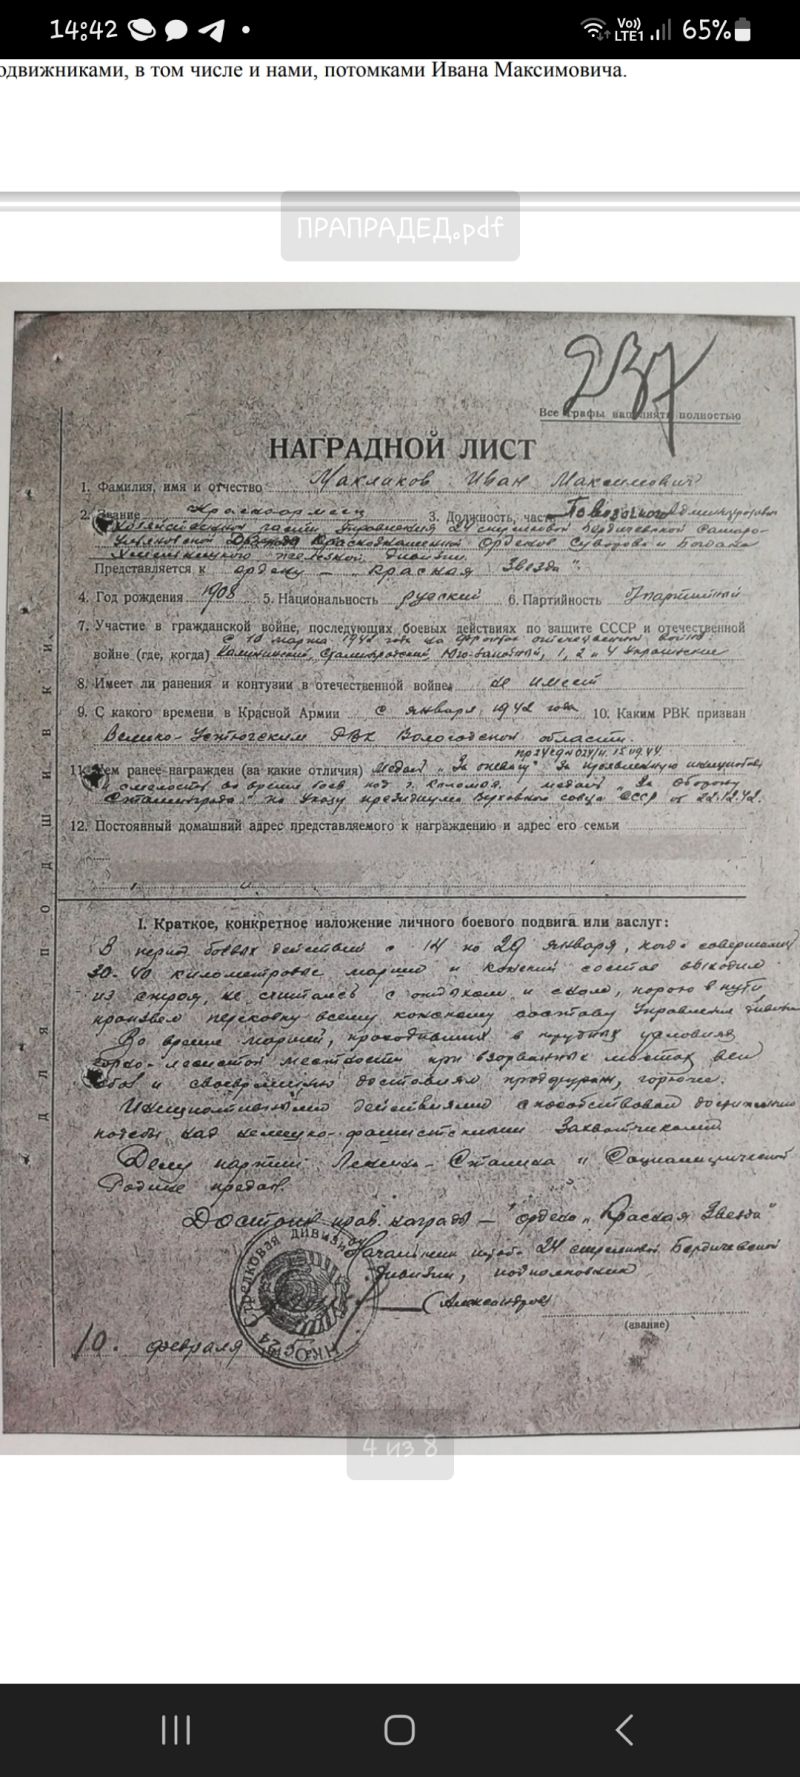 14:42
Vo)) LTE1 65%
одвижниками, в том числе и нами, потомками Ивана Максимовича.
ПРАПРАДЕД.pdf
237
Все графы наполнять полностью
НАГРАДНОЙ ЛИСТ
1. Фамилия, имя и отчество Макликов Иван Максимович
2. Звание Красноармеец 3. Должность, часть Повозочный
части Управления 24 стрелковой Бердичевской Самаро-
Ульяновской Краснознаменной Орденов Суворова и Богдана
Хмельницкого железной дивизии.
Представляется к ордену - "Красная Звезда".
4. Год рождения 1908 5. Национальность русский 6. Партийность б/партийный
7. Участие в гражданской войне, последующих боевых действиях по защите СССР и отечественной
с 10 марта 1942 года на фронтах отечественной войны:
войне (где, когда) Калининский, Сталинградский, Юго-Западный, 1, 2 и 4 Украинские
8. Имеет ли ранения и контузии в отечественной войне не имеет
9. С какого времени в Красной Армии с января 1942 года 10. Каким РВК призван
Велико-Устюгским РВК Вологодской области.
11. Чем ранее награжден (за какие отличия) Медаль "За отвагу" за проявленную инициативу
и смелость во время боев под г. медаль "За Оборону
Сталинграда" по Указу президиума Верховного совета СССР от 22.12.42.
12. Постоянный домашний адрес представляемого к награждению и адрес его семьи
ДЛЯ ПОДШИВКИ
I. Краткое, конкретное изложение личного боевого подвига или заслуг:
В период боевых действий с 14 по 29 января, когда совершали
30-40 километровые марши и конский состав выходил
из строя, не считаясь с отдыхом и сном, порою в пути
произвел перековку всему конскому составу Управления дивизии
Во время маршей, проходивших в трудных условиях
горно-лесистой местности при взорванных мостах
и своевременно доставлял продфураж, горючее.
Инициативными действиями способствовал достижению
победы над немецко-фашистскими захватчиками.
Делу партии Ленина-Сталина и Социалистической
Родине предан.
Достоин прав. награды - ордена "Красная Звезда"
Начальник штаба 24 стрелковой Бердичевской
дивизии, подполковник
(Александров)
(звание)
10. февраля
Стрелковая дивизия
НКО 24
4 из 8